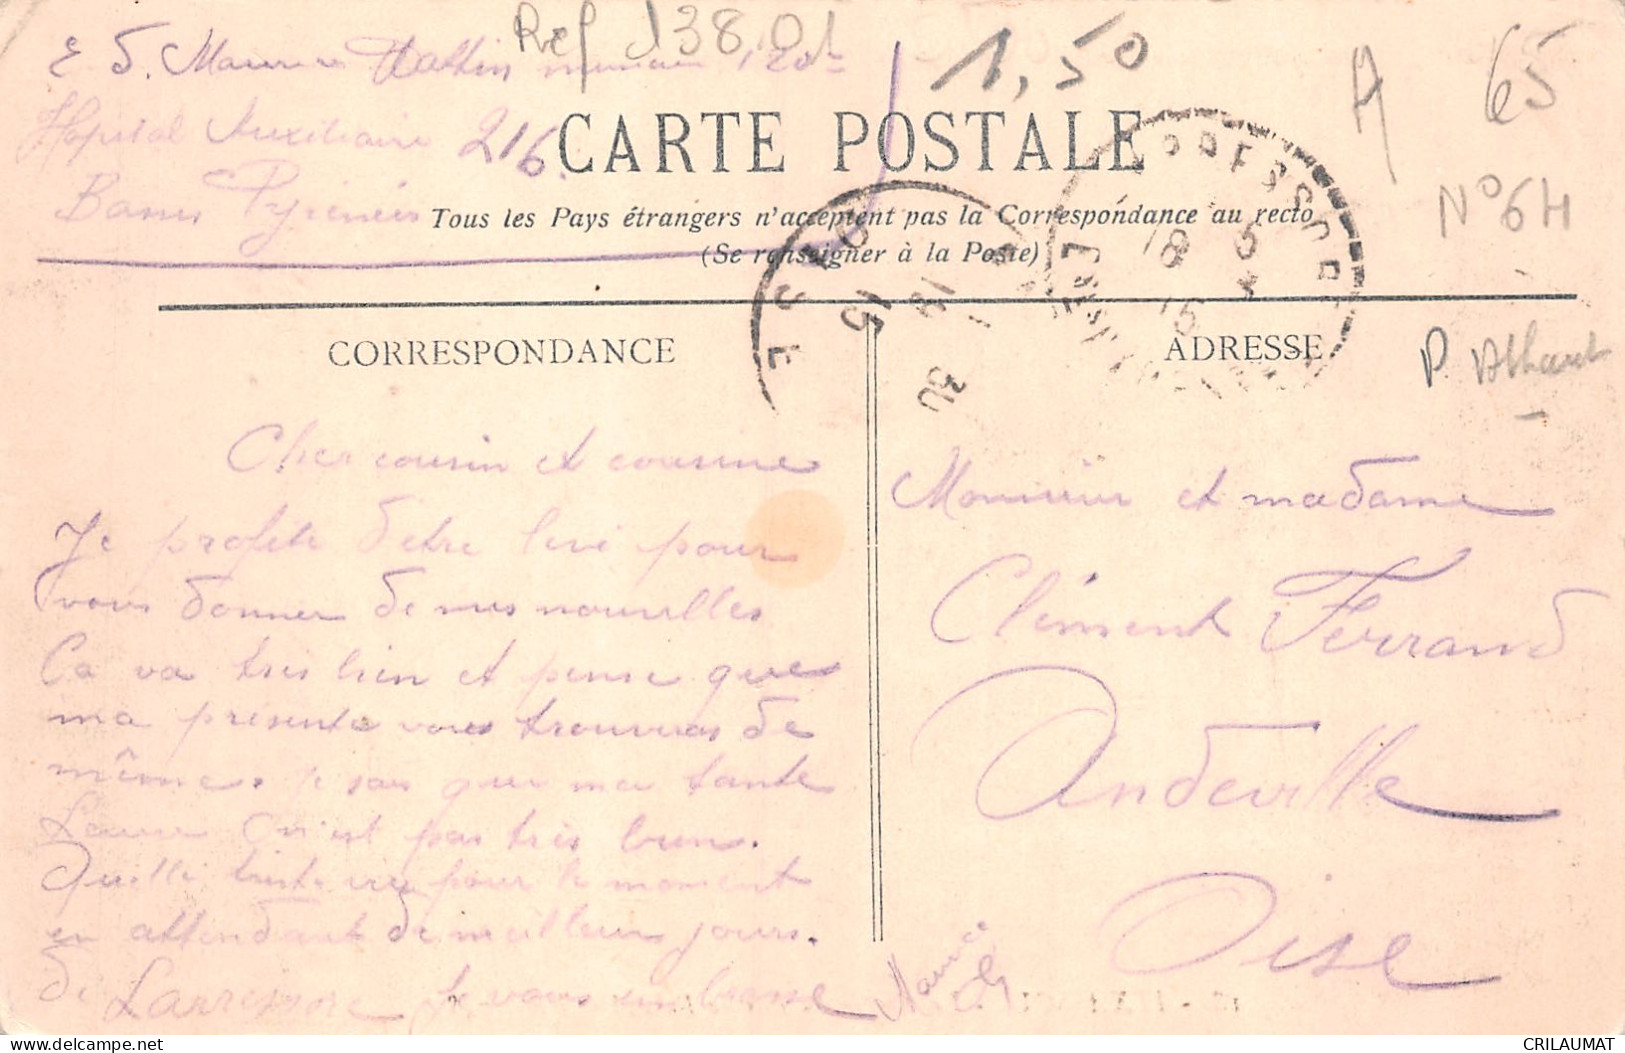 Ref 13801
1,50
A
65
N° 64
E D. Maurice
Hopital Auxiliaire 216.
Basses Pyrénées
CARTE POSTALE
Tous les Pays étrangers n'acceptent pas la Correspondance au recto
(Se renseigner à la Poste)
CORRESPONDANCE
ADRESSE
18 5
15
OISE
15
30
Cher cousin et cousine
Je profite detre levé pour
vous donner de mes nouvelles
Ça va très bien et pense que
ma présente vous trouveras de
même. Je sais que ma tante
n'est pas très bien.
Quelle triste vie pour le moment
en attendant de meilleurs jours.
de Larressore Je vous embrasse
Maurice
Monsieur et madame
Clément Ferrand
Andeville
Oise
CRILAUMAT